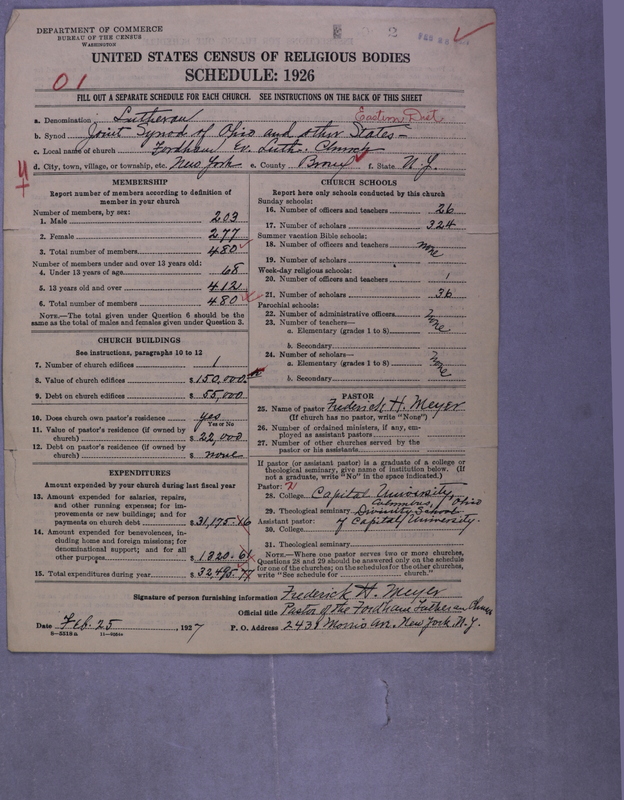 DEPARTMENT OF COMMERCE
BUREAU OF THE CENSUS
WASHINGTON
UNITED STATES CENSUS OF RELIGIOUS BODIES
SCHEDULE: 1926
01
FILL OUT A SEPARATE SCHEDULE FOR EACH CHURCH. SEE INSTRUCTIONS ON THE BACK OF THIS SHEET
a. Denomination Lutheran Eastern Dist
b. Synod Joint Synod of Ohio and other States
c. Local name of church Fordham Ev. Luth. Church
d. City, town, village, or township, etc. New York e. County Bronx f. State N.Y.
MEMBERSHIP
Report number of members according to definition of
member in your church
Number of members, by sex:
1. Male 203
2. Female 277
3. Total number of members 480
Number of members under and over 13 years old:
4. Under 13 years of age 68
5. 13 years old and over 412
6. Total number of members 480
NOTE.—The total given under Question 6 should be the
same as the total of males and females given under Question 3.
CHURCH BUILDINGS
See instructions, paragraphs 10 to 12
7. Number of church edifices 1
8. Value of church edifices $150,000.
9. Debt on church edifices $55,000
10. Does church own pastor's residence yes
Yes or No
11. Value of pastor's residence (if owned by
church) $22,000
12. Debt on pastor's residence (if owned by
church) $none
EXPENDITURES
Amount expended by your church during last fiscal year
13. Amount expended for salaries, repairs,
and other running expenses; for im-
provements or new buildings; and for
payments on church debt $31,175.16
14. Amount expended for benevolences, in-
cluding home and foreign missions; for
denominational support; and for all
other purposes $1320.61
15. Total expenditures during year $32495.77
CHURCH SCHOOLS
Report here only schools conducted by this church
Sunday schools:
16. Number of officers and teachers 26
17. Number of scholars 324
Summer vacation Bible schools:
18. Number of officers and teachers none
19. Number of scholars
Week-day religious schools:
20. Number of officers and teachers 1
21. Number of scholars 36
Parochial schools:
22. Number of administrative officers none
23. Number of teachers—
a. Elementary (grades 1 to 8)
b. Secondary
24. Number of scholars— none
a. Elementary (grades 1 to 8)
b. Secondary
PASTOR
25. Name of pastor Frederick H. Meyer
(If church has no pastor, write "None")
26. Number of ordained ministers, if any, em-
ployed as assistant pastors
27. Number of other churches served by the
pastor or his assistants
If pastor (or assistant pastor) is a graduate of a college or
theological seminary, give name of institution below. (If
not a graduate, write "No" in the space indicated.)
Pastor:
28. College Capital University
Columbus, Ohio
29. Theological seminary Divinity School
Assistant pastor: of Capital University.
30. College
31. Theological seminary
NOTE.—Where one pastor serves two or more churches,
Questions 28 and 29 should be answered only on the schedule
for one of the churches; on the schedules for the other churches,
write "See schedule for church."
Signature of person furnishing information Frederick H. Meyer
Official title Pastor of the Fordham Lutheran Church
Date Feb. 25, 1927 P. O. Address 2431 Morris Av. New York. N.Y.